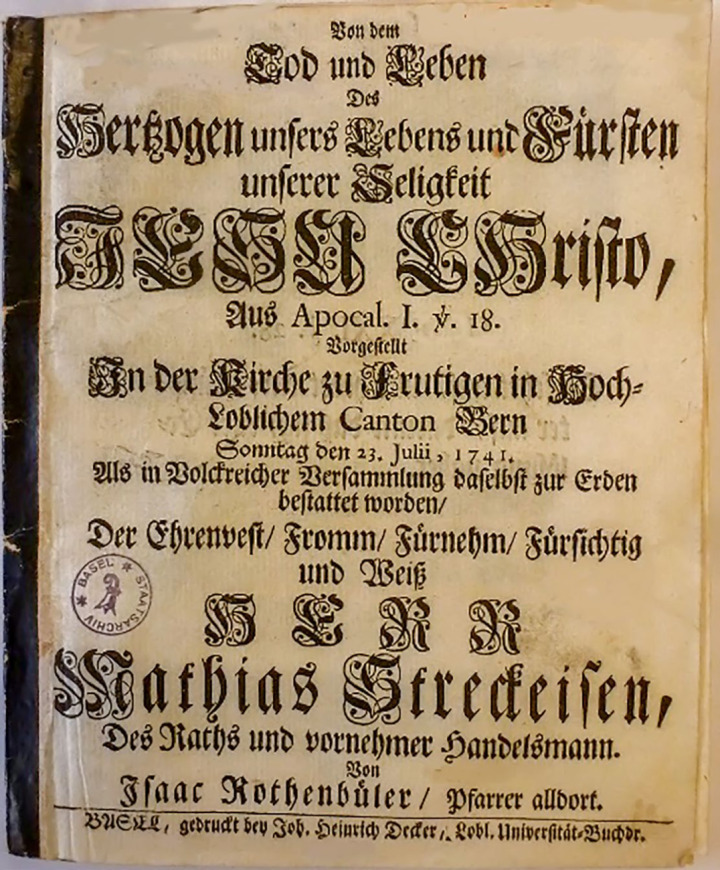 Von dem
Tod und Leben
Des
Hertzogen unsers Lebens und Fürsten
unserer Seligkeit
JESU CHristo,
Aus Apocal. I. ℣. 18.
Vorgestellt
In der Kirche zu Frutigen in Hoch-
Loblichem Canton Bern
Sonntag den 23. Julii, 1741.
Als in Volckreicher Versammlung daselbst zur Erden
bestattet worden/
Der Ehrenvest/ Fromm/ Fürnehm/ Fürsichtig
und Weiß
HERR
Mathias Streckeisen,
Des Raths und vornehmer Handelsmann.
Von
Isaac Rothenbüler/ Pfarrer alldort.
BASEL, gedruckt bey Joh. Heinrich Decker/ Lobl. Universität-Buchdr.
BASEL STAATSARCHIV